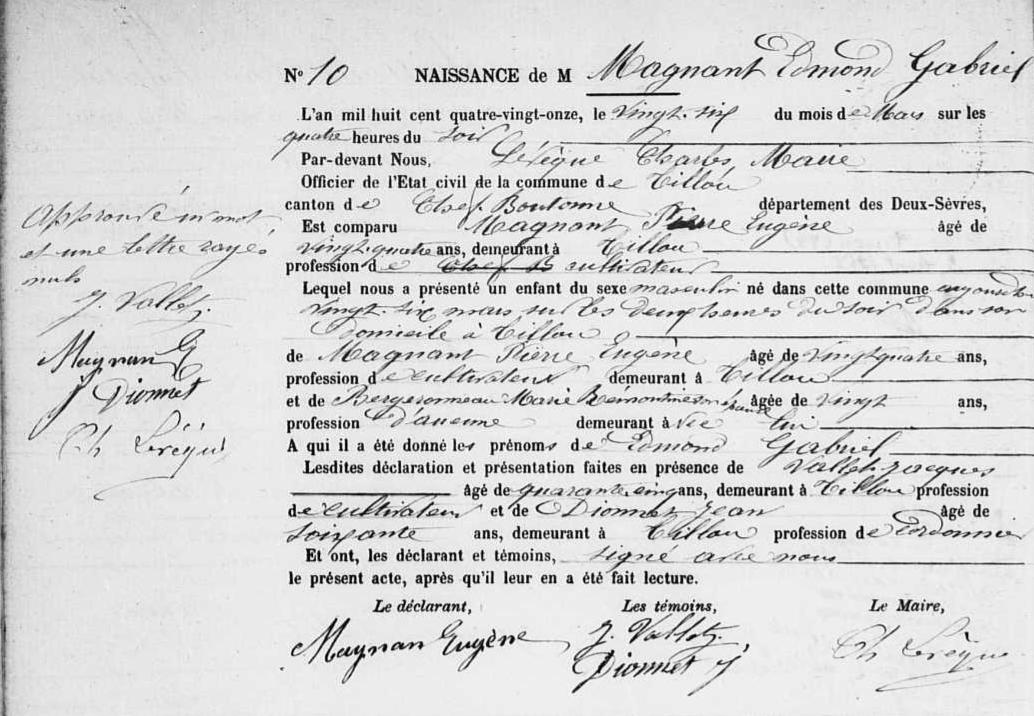 N° 10 NAISSANCE de M Magnant Edmond Gabriel
L'an mil huit cent quatre-vingt-onze, le vingt-six du mois de Mars sur les
quatre heures du soir
Par-devant Nous, Lévêque Charles, Maire
Officier de l'Etat civil de la commune de Tillou
canton de Chef Boutonne département des Deux-Sèvres,
Est comparu Magnant Pierre Eugène âgé de
vingt-quatre ans, demeurant à Tillou
profession de Chef B cultivateur
Lequel nous a présenté un enfant du sexe masculin né dans cette commune
vingt-six mars sur les deux heures du soir dans son
domicile à Tillou
de Magnant Pierre Eugène âgé de vingt quatre ans,
profession de cultivateur demeurant à Tillou
et de Bergeronneau Marie son épouse âgée de vingt ans,
profession d'aucune demeurant à Tillou
A qui il a été donné les prénoms de Edmond Gabriel
Lesdites déclaration et présentation faites en présence de Vallet Jacques
âgé de quarante cinq ans, demeurant à Tillou profession
de cultivateur et de Dionnet Jean âgé de
soixante ans, demeurant à Tillou profession de Cordonnier
Et ont, les déclarant et témoins, signé avec nous
le présent acte, après qu'il leur en a été fait lecture.
Le déclarant, Les témoins, Le Maire,
Magnan Eugène J. Vallet Ch Lévêque
Dionnet J
Approuvé un mot
et une lettre rayés
nuls
J. Vallet
Magnan E
J Dionnet
Ch Lévêque